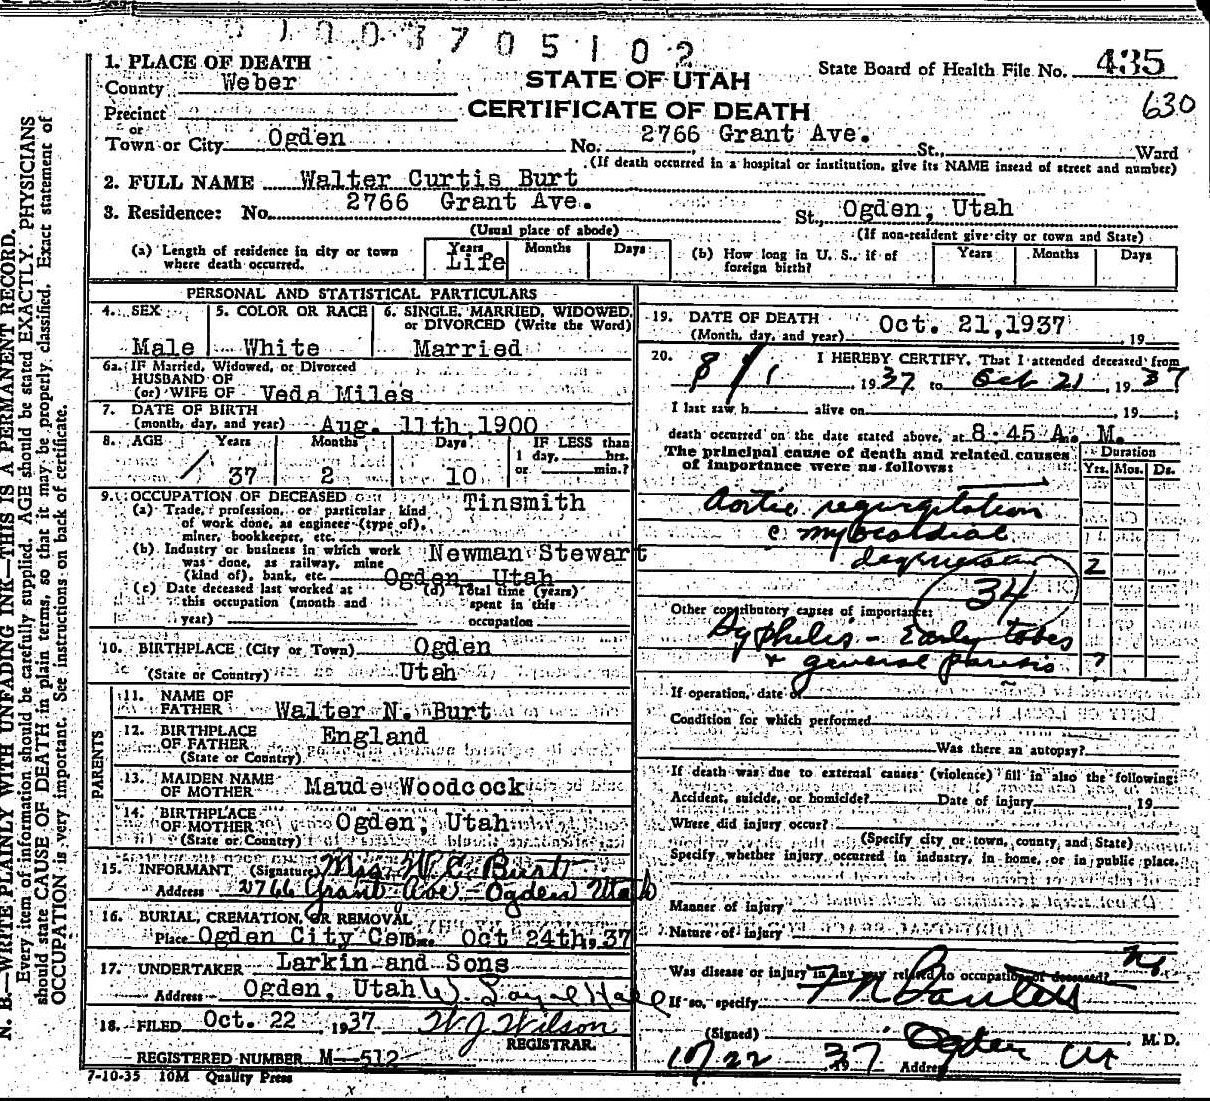 0 1 0 0 3 7 0 5 1 0 2
1. PLACE OF DEATH
County Weber
STATE OF UTAH
CERTIFICATE OF DEATH
State Board of Health File No. 435
630
Precinct
or
Town or City Ogden No. 2766 Grant Ave. St., Ward
(If death occurred in a hospital or institution, give its NAME insead of street and number)
2. FULL NAME Walter Curtis Burt
3. Residence: No. 2766 Grant Ave. St., Ogden, Utah
(Usual place of abode) (If non-resident give city or town and State)
(a) Length of residence in city or town where death occurred. Years Months Days
Life
(b) How long in U. S., if of foreign birth? Years Months Days
PERSONAL AND STATISTICAL PARTICULARS
4. SEX 5. COLOR OR RACE 6. SINGLE, MARRIED, WIDOWED, or DIVORCED (Write the Word)
Male White Married
6a. IF Married, Widowed, or Divorced
HUSBAND OF
(or) WIFE OF Veda Miles
7. DATE OF BIRTH
(month, day, and year) Aug. 11th, 1900
8. AGE Years Months Days IF LESS than
1 day, hrs.
or min.?
37 2 10
9. OCCUPATION OF DECEASED Tinsmith
(a) Trade, profession, or particular kind
of work done, as engineer (type of),
miner, bookkeeper, etc.
(b) Industry or business in which work Newman Stewart
was done, as railway, mine
(kind of), bank, etc. Ogden, Utah
(c) Date deceased last worked at
this occupation (month and
year)
(d) Total time (years)
spent in this
occupation
10. BIRTHPLACE (City or Town) Ogden
(State or Country) Utah
PARENTS
11. NAME OF
FATHER Walter N. Burt
12. BIRTHPLACE
OF FATHER England
(State or Country)
13. MAIDEN NAME
OF MOTHER Maude Woodcock
14. BIRTHPLACE
OF MOTHER Ogden, Utah
(State or Country)
15. INFORMANT (Signature) Mrs. W. C. Burt
Address 2766 Grant Ave - Ogden Utah
16. BURIAL, CREMATION, OR REMOVAL
Place Ogden City Cem. Date Oct 24th, 37
17. UNDERTAKER Larkin and Sons
Address Ogden, Utah W.
18. FILED Oct. 22, 1937 W J Wilson
REGISTRAR.
REGISTERED NUMBER M-512
7-10-35 10M Quality Press
19. DATE OF DEATH
(Month, day, and year) Oct. 21, 1937, 19
20. I HEREBY CERTIFY, That I attended deceased from
8/1, 1937 to Oct 21, 1937
I last saw h alive on , 19 ;
death occurred on the date stated above, at 8:45 A. M.
The principal cause of death and related causes
of importance were as follows:
Duration
Yrs. Mos. Ds.
Aortic regurgitation
c myocardial
degeneration 2
34
Other contributory causes of importance:
Syphilis - Early tabes
+ general paresis ?
If operation, date of
Condition for which performed
Was there an autopsy?
If death was due to external causes (violence) fill in also the following:
Accident, suicide, or homicide? Date of injury , 19
Where did injury occur?
(Specify city or town, county, and State)
Specify whether injury occurred in industry, in home, or in public place.
Manner of injury
Nature of injury
Was disease or injury in any way related to occupation of deceased? No
If so, specify
(Signed) M. D.
10/22 1937 Address Ogden Ut
N. B.—WRITE PLAINLY WITH UNFADING INK—THIS IS A PERMANENT RECORD.
Every item of information should be carefully supplied. AGE should be stated EXACTLY. PHYSICIANS
should state CAUSE OF DEATH in plain terms, so that it may be properly classified. Exact statement of
OCCUPATION is very important. See instructions on back of certificate.